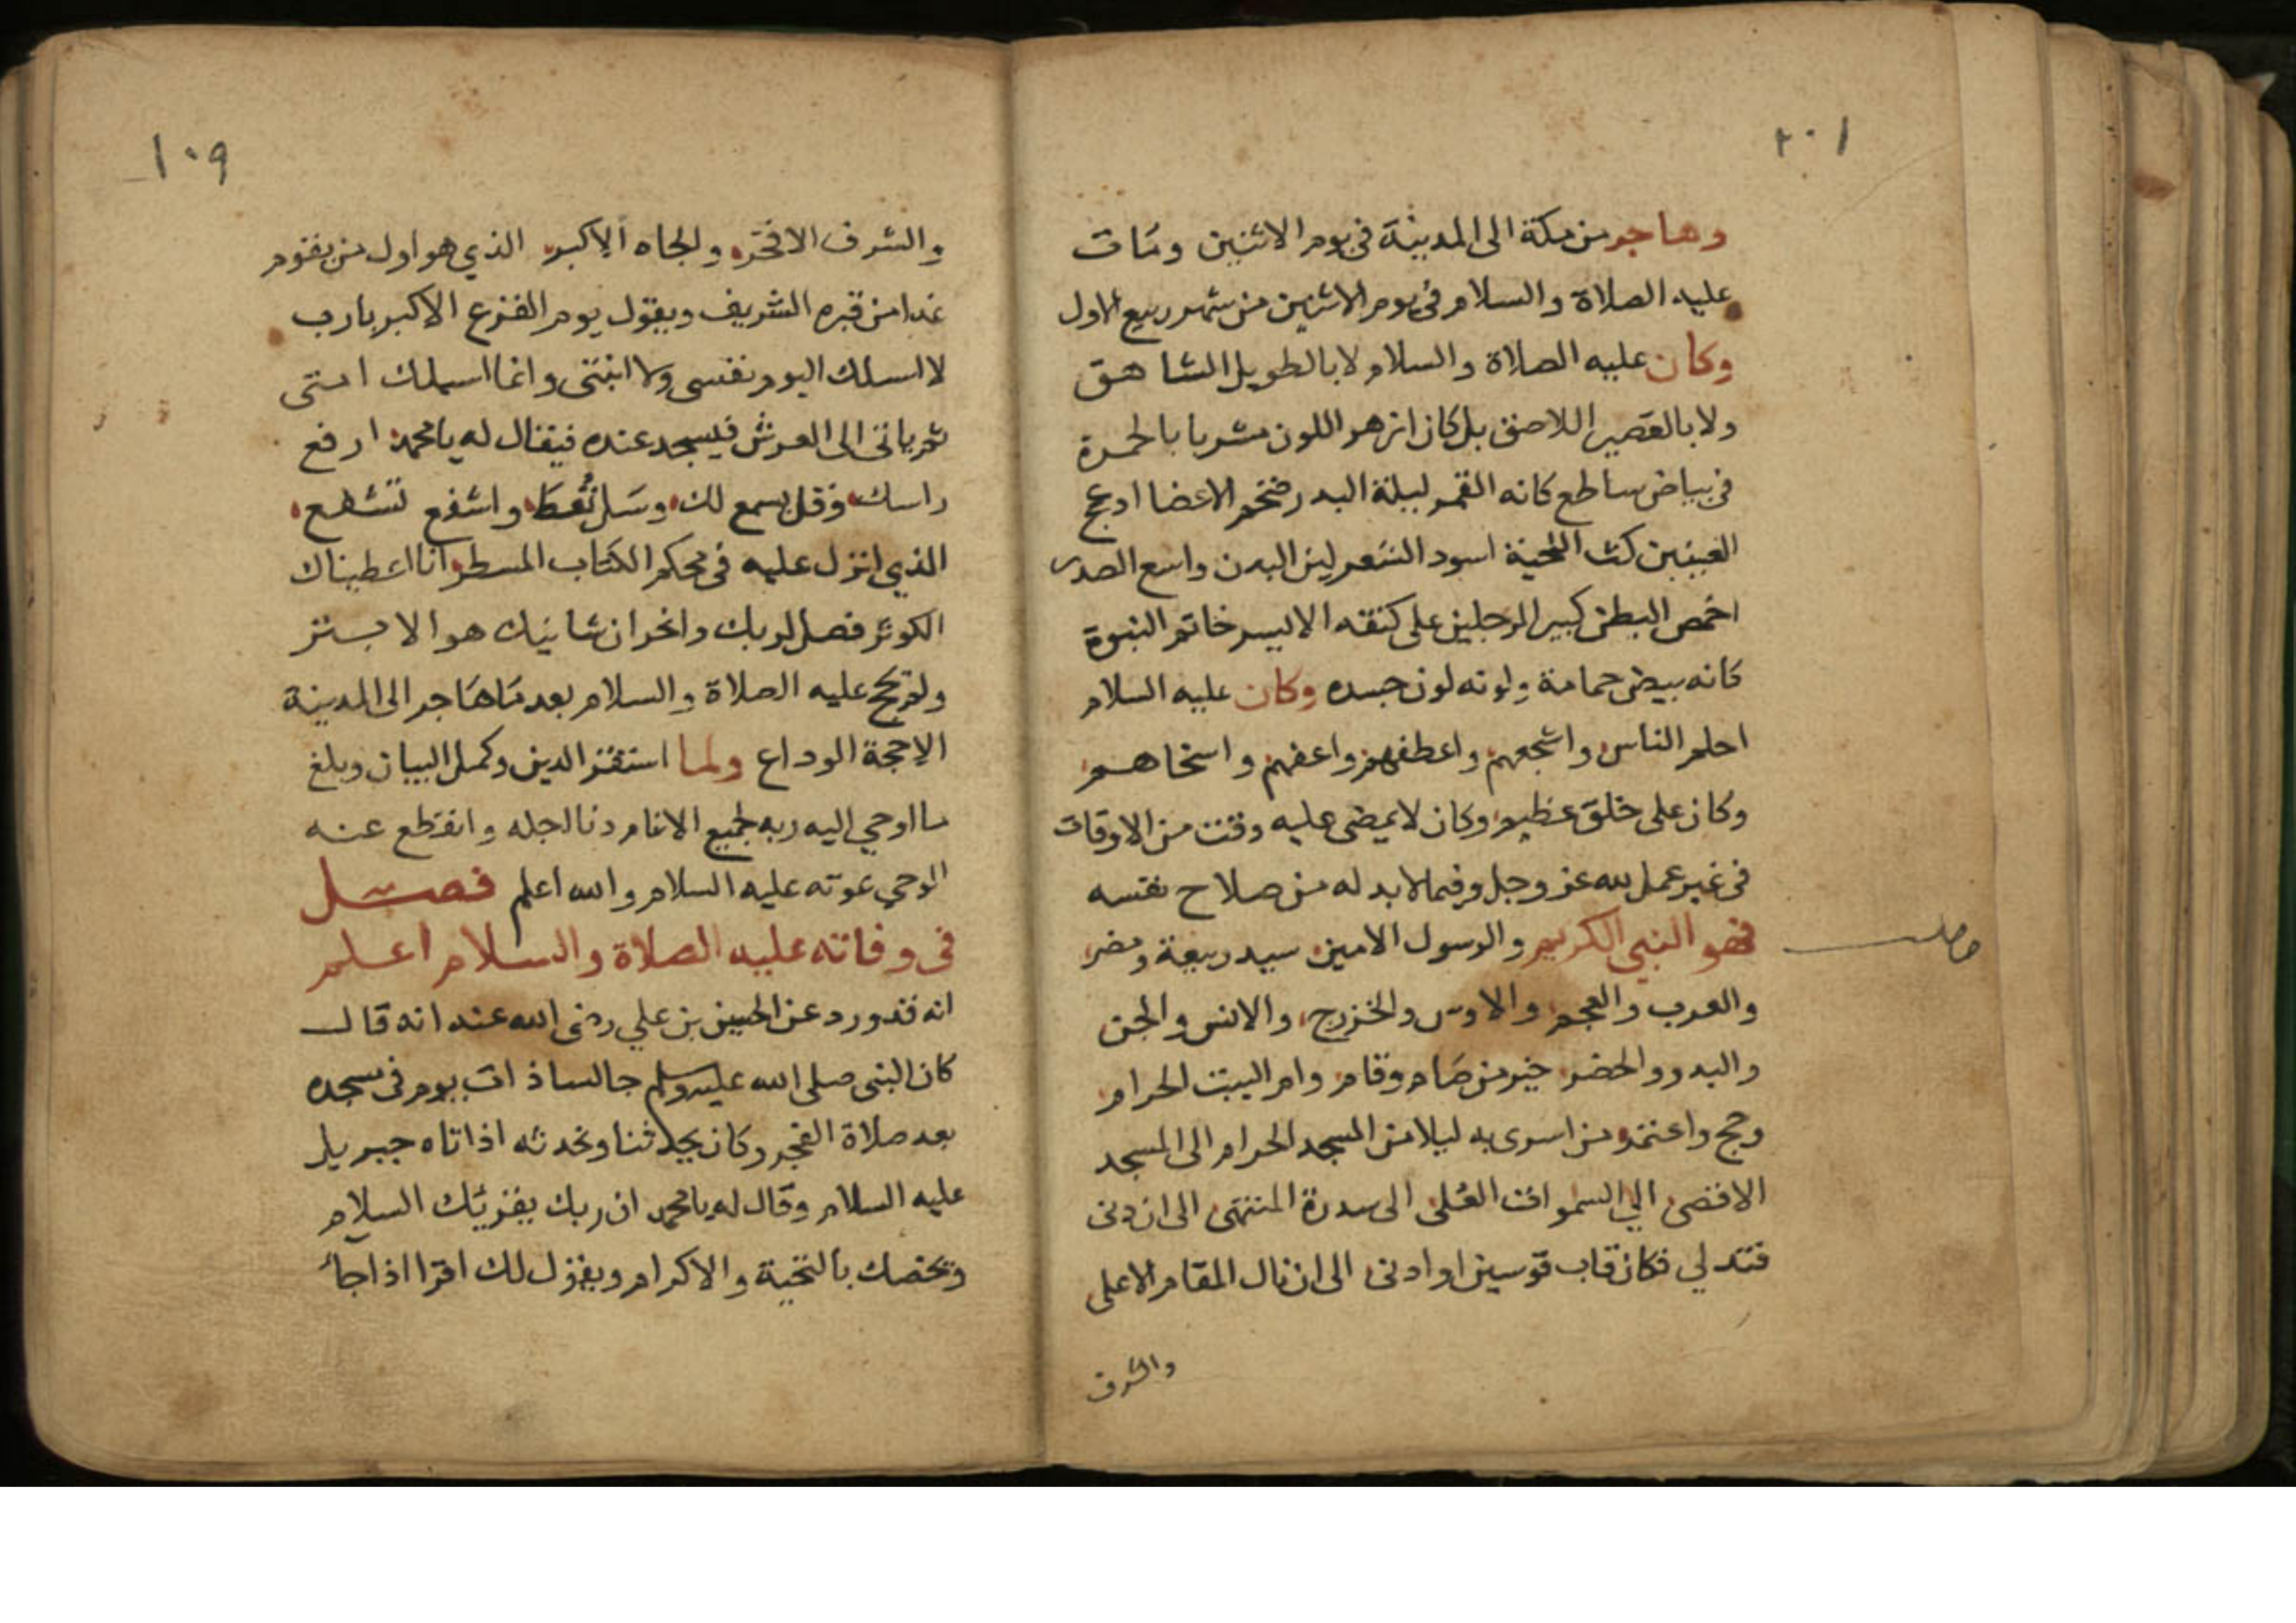 ٢٠١
وهاجر من مكة الى المدينة في يوم الاثنين ومات
عليه الصلاة والسلام في يوم الاثنين من شهر ربيع الاول
وكان عليه الصلاة والسلام لا بالطويل الشاهق
ولا بالقصير اللاصق بل كان ازهر اللون مشربا بالحمرة
في بياض ساطع كانه القمر ليلة البدر ضخم الاعضا ادعج
العينين كث اللحية اسود الشعر لين البدن واسع الصدر
اخمص البطن كبير الرجلين على كتفه الايسر خاتم النبوة
كانه بيض حمامة ولونه لون جسده وكان عليه السلام
احلم الناس واشجعهم واعطفهم واعفهم واسخاهم
وكان على خلق عظيم وكان لا يمضى عليه وقت من الاوقات
في غير عمل لله عز وجل وفيما لا بد له من صلاح نفسه
فهو النبي الكريم والرسول الامين سيد ربيعة ومضر
والعرب والعجم والاوس والخزرج والانس والجن
والبدو والحضر خير من صام وقام وام البيت الحرام
وحج واعتمر من اسرى به ليلا من المسجد الحرام الى المسجد
الاقصى الي السموات العُلى الى سدرة المنتهى الى ان دنى
فتدلي فكان قاب قوسين او ادنى الى ان نال المقام الاعلى
والشرف
١٠٩
والشرف الافخر والجاه الاكبر الذي هو اول من يقوم
غدا من قبره الشريف ويقول يوم الفزع الاكبر يا رب
لا اسلك اليوم نفسى ولا ابنتى وانما اسيلك امتى
ثم ياتى الى العرش فيسجد عنده فيقال له يا محمد ارفع
راسك وقل يسمع لك وسل تُعط واشفع تشفع
الذي انزل عليه في محكم الكتاب المسطر انا اعطيناك
الكوثر فصل لربك وانحر ان شانيك هو الابتر
ولم يحج عليه الصلاة والسلام بعد ما هاجر الى المدينة
الا حجة الوداع ولما استقر الدين وكمل البيان وبلغ
ما اوحي اليه ربه لجميع الانام دنا اجله وانقطع عنه
الوحي بموته عليه السلام والله اعلم فصل
في وفاته عليه الصلاة والسلام اعلم
انه قد ورد عن الحسين بن علي رضى الله عنه انه قال
كان النبى صلى الله عليه وسلم جالسا ذات يوم في مسجده
بعد صلاة الفجر وكان يحدثنا ونحدثه اذ اتاه جبريل
عليه السلام وقال له يا محمد ان ربك يقريك السلام
ويخصك بالتحية والاكرام ويقول لك اقرا اذا جاء